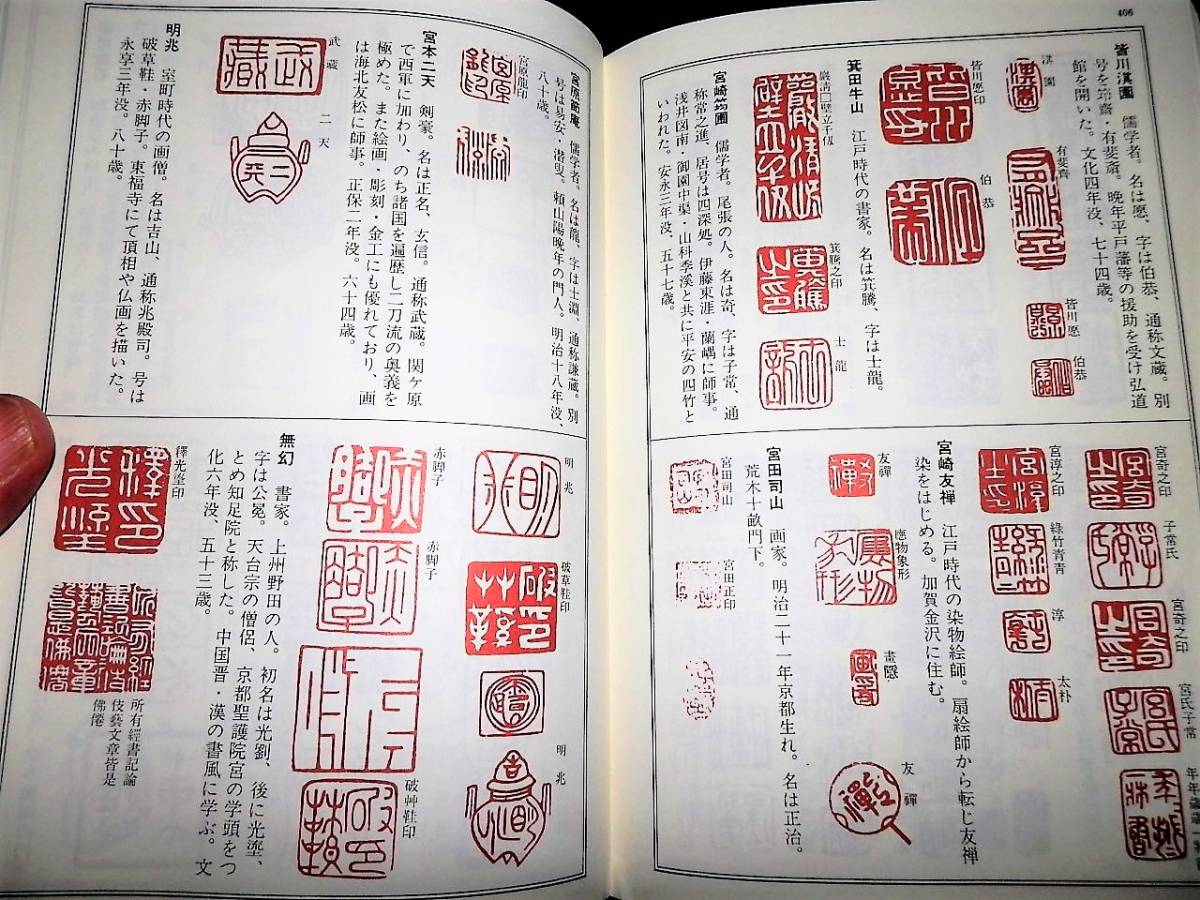 406
皆川淇園　儒学者。名は愿、字は伯恭、通称文蔵。別
号を筇齋・有斐斎。晩年平戸藩等の援助を受け弘道
館を開いた。文化四年没、七十四歳。
淇園
有斐齋
皆川愿
伯恭
皆川愿印
伯恭
箕田牛山　江戸時代の書家。名は箕騰、字は士龍。
巌清□壁立千仭
箕騰之印
士龍
宮崎筠圃　儒学者。尾張の人。名は奇、字は子常、通
称常之進、居号は四深処。伊藤東涯・蘭嵎に師事。
浅井図南・御園中渠・山科季渓と共に平安の四竹と
いわれた。安永三年没、五十七歳。
宮奇之印
子常氏
宮奇之印
宮氏子常
宮淳之印
綠竹青青
淳
太朴
宮崎友禅　江戸時代の染物絵師。扇絵師から転じ友禅
染をはじめる。加賀金沢に住む。
友禪
應物象形
畫隱
友禪
宮田司山　画家。明治二十一年京都生れ。名は正治。
荒木十畝門下。
宮田司山
宮田正印
宮原節庵　儒学者。名は龍、字は士淵、通称謙蔵。別
号は易安・潜叟。頼山陽晩年の門人。明治十八年没、
八十歳。
宮原龍印
宮本二天　剣豪。名は正名、玄信。通称武蔵。関ケ原
で西軍に加わり、のち諸国を遍歴し二刀流の奥義を
極めた。また絵画・彫刻・金工にも優れており、画
は海北友松に師事。正保二年没。六十四歳。
武藏
二天
明兆　室町時代の画僧。名は吉山、通称兆殿司。号は
破草鞋・赤脚子。東福寺にて頂相や仏画を描いた。
永享三年没。八十歳。
明兆
破草鞋印
明兆
赤脚子
赤脚子
破艸鞋印
無幻　書家。上州野田の人。初名は光劉、後に光塰、
字は公冕。天台宗の僧侶、京都聖護院宮の学頭をつ
とめ知足院と称した。中国晋・漢の書風に学ぶ。文
化六年没、五十三歳。
釋光塰印
所有經書記論
伎藝文章皆是
佛僊